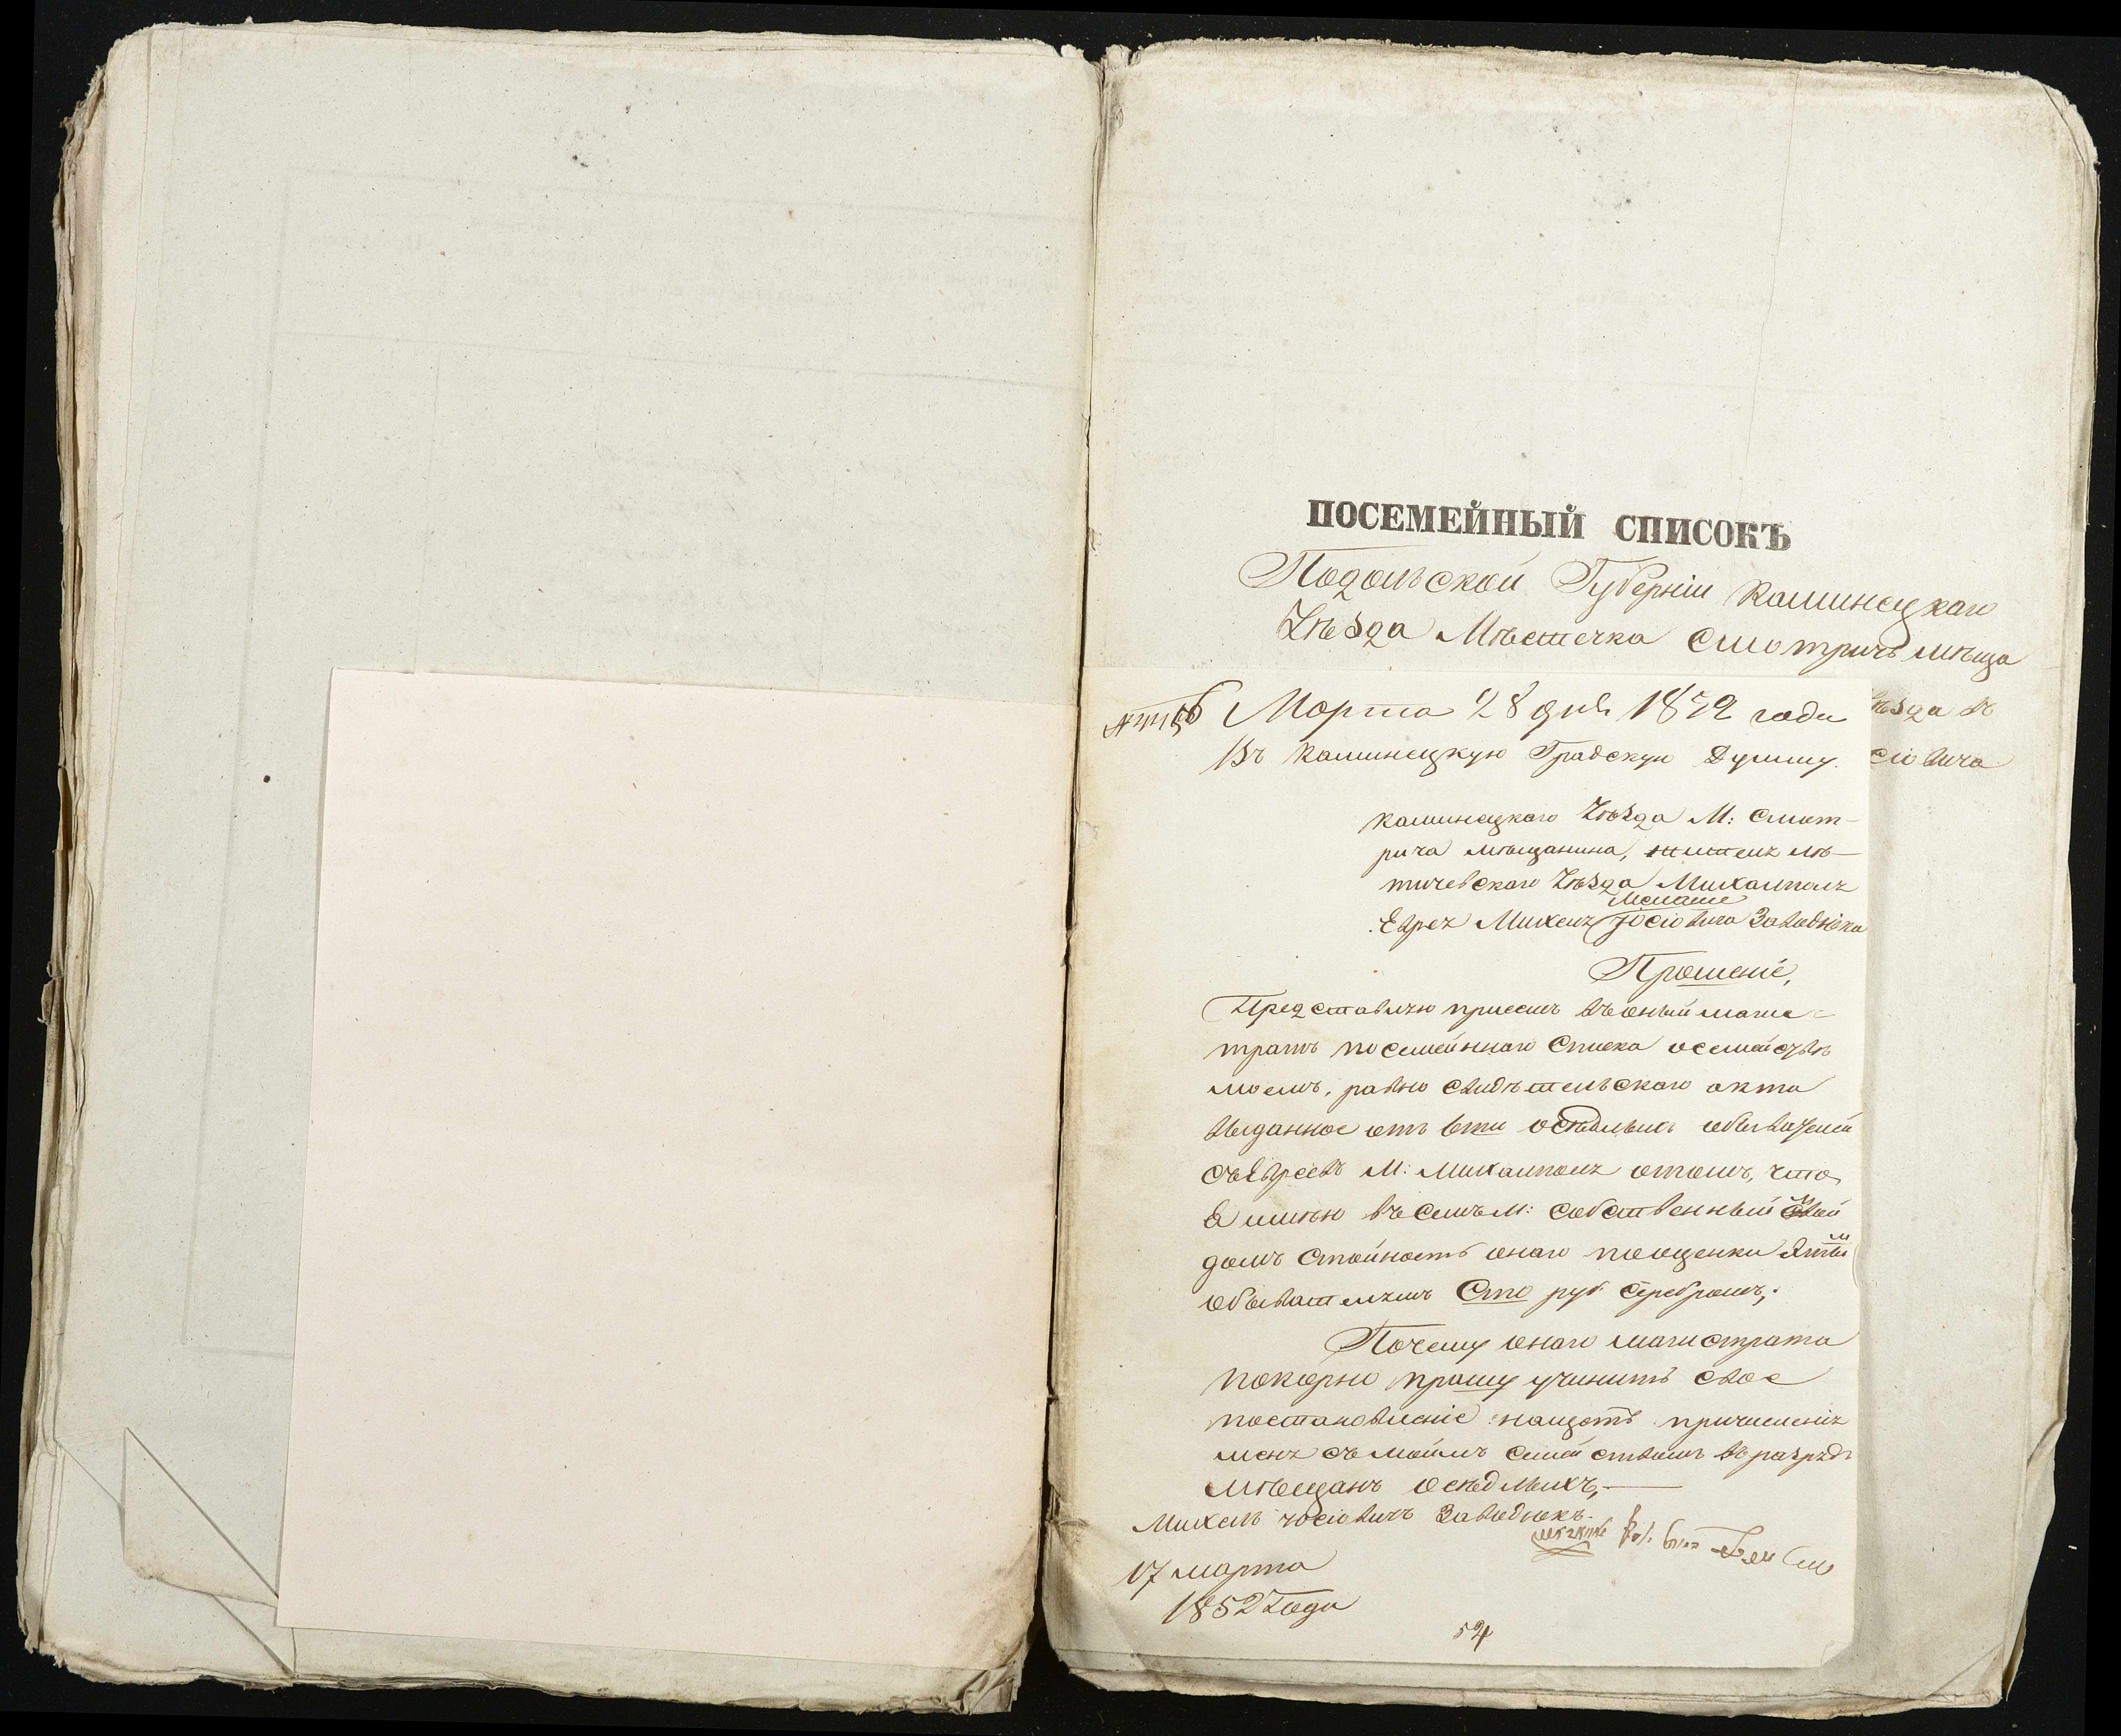 ПОСЕМЕЙНЫЙ СПИСОКЪ
Подольской Губерніи Каминецкаго
Уѣзда Мѣстечка Смотричъ мѣща
ѣзда въ
сіовича
Марта 28 дня 1852 года
Въ Каминецкую Градскую Думму.
Каминецкаго Уѣзда М: Смот-
рича мѣщанина, жителя лѣ-
тичевскаго Уѣзда Михалполя
Еврея Михеля Іосіовича Заводніка
Прошеніе,
Представляю присемъ въоный маги-
тратъ посемейнаго Списка осемействѣ
моемъ, равно свидѣтельскаго акта
выданное отъ 6ти осѣдлыхъ обывателей
съЕвреевъ М: Михалполя отомъ, что
я имѣю въсемъ М: собственный мой
домъ стойность онаго пооценки
обывателямъ Сто руб серебромъ,
Почему онаго магистрата
покорно прошу учинить свое
постановленіе нащотъ причисленія
меня съ моимъ семействомъ въ разрядъ
мѣщанъ осѣдлыхъ,
Михель Іосіовичъ Заводнюкъ.
17 марта
1852 Года
54